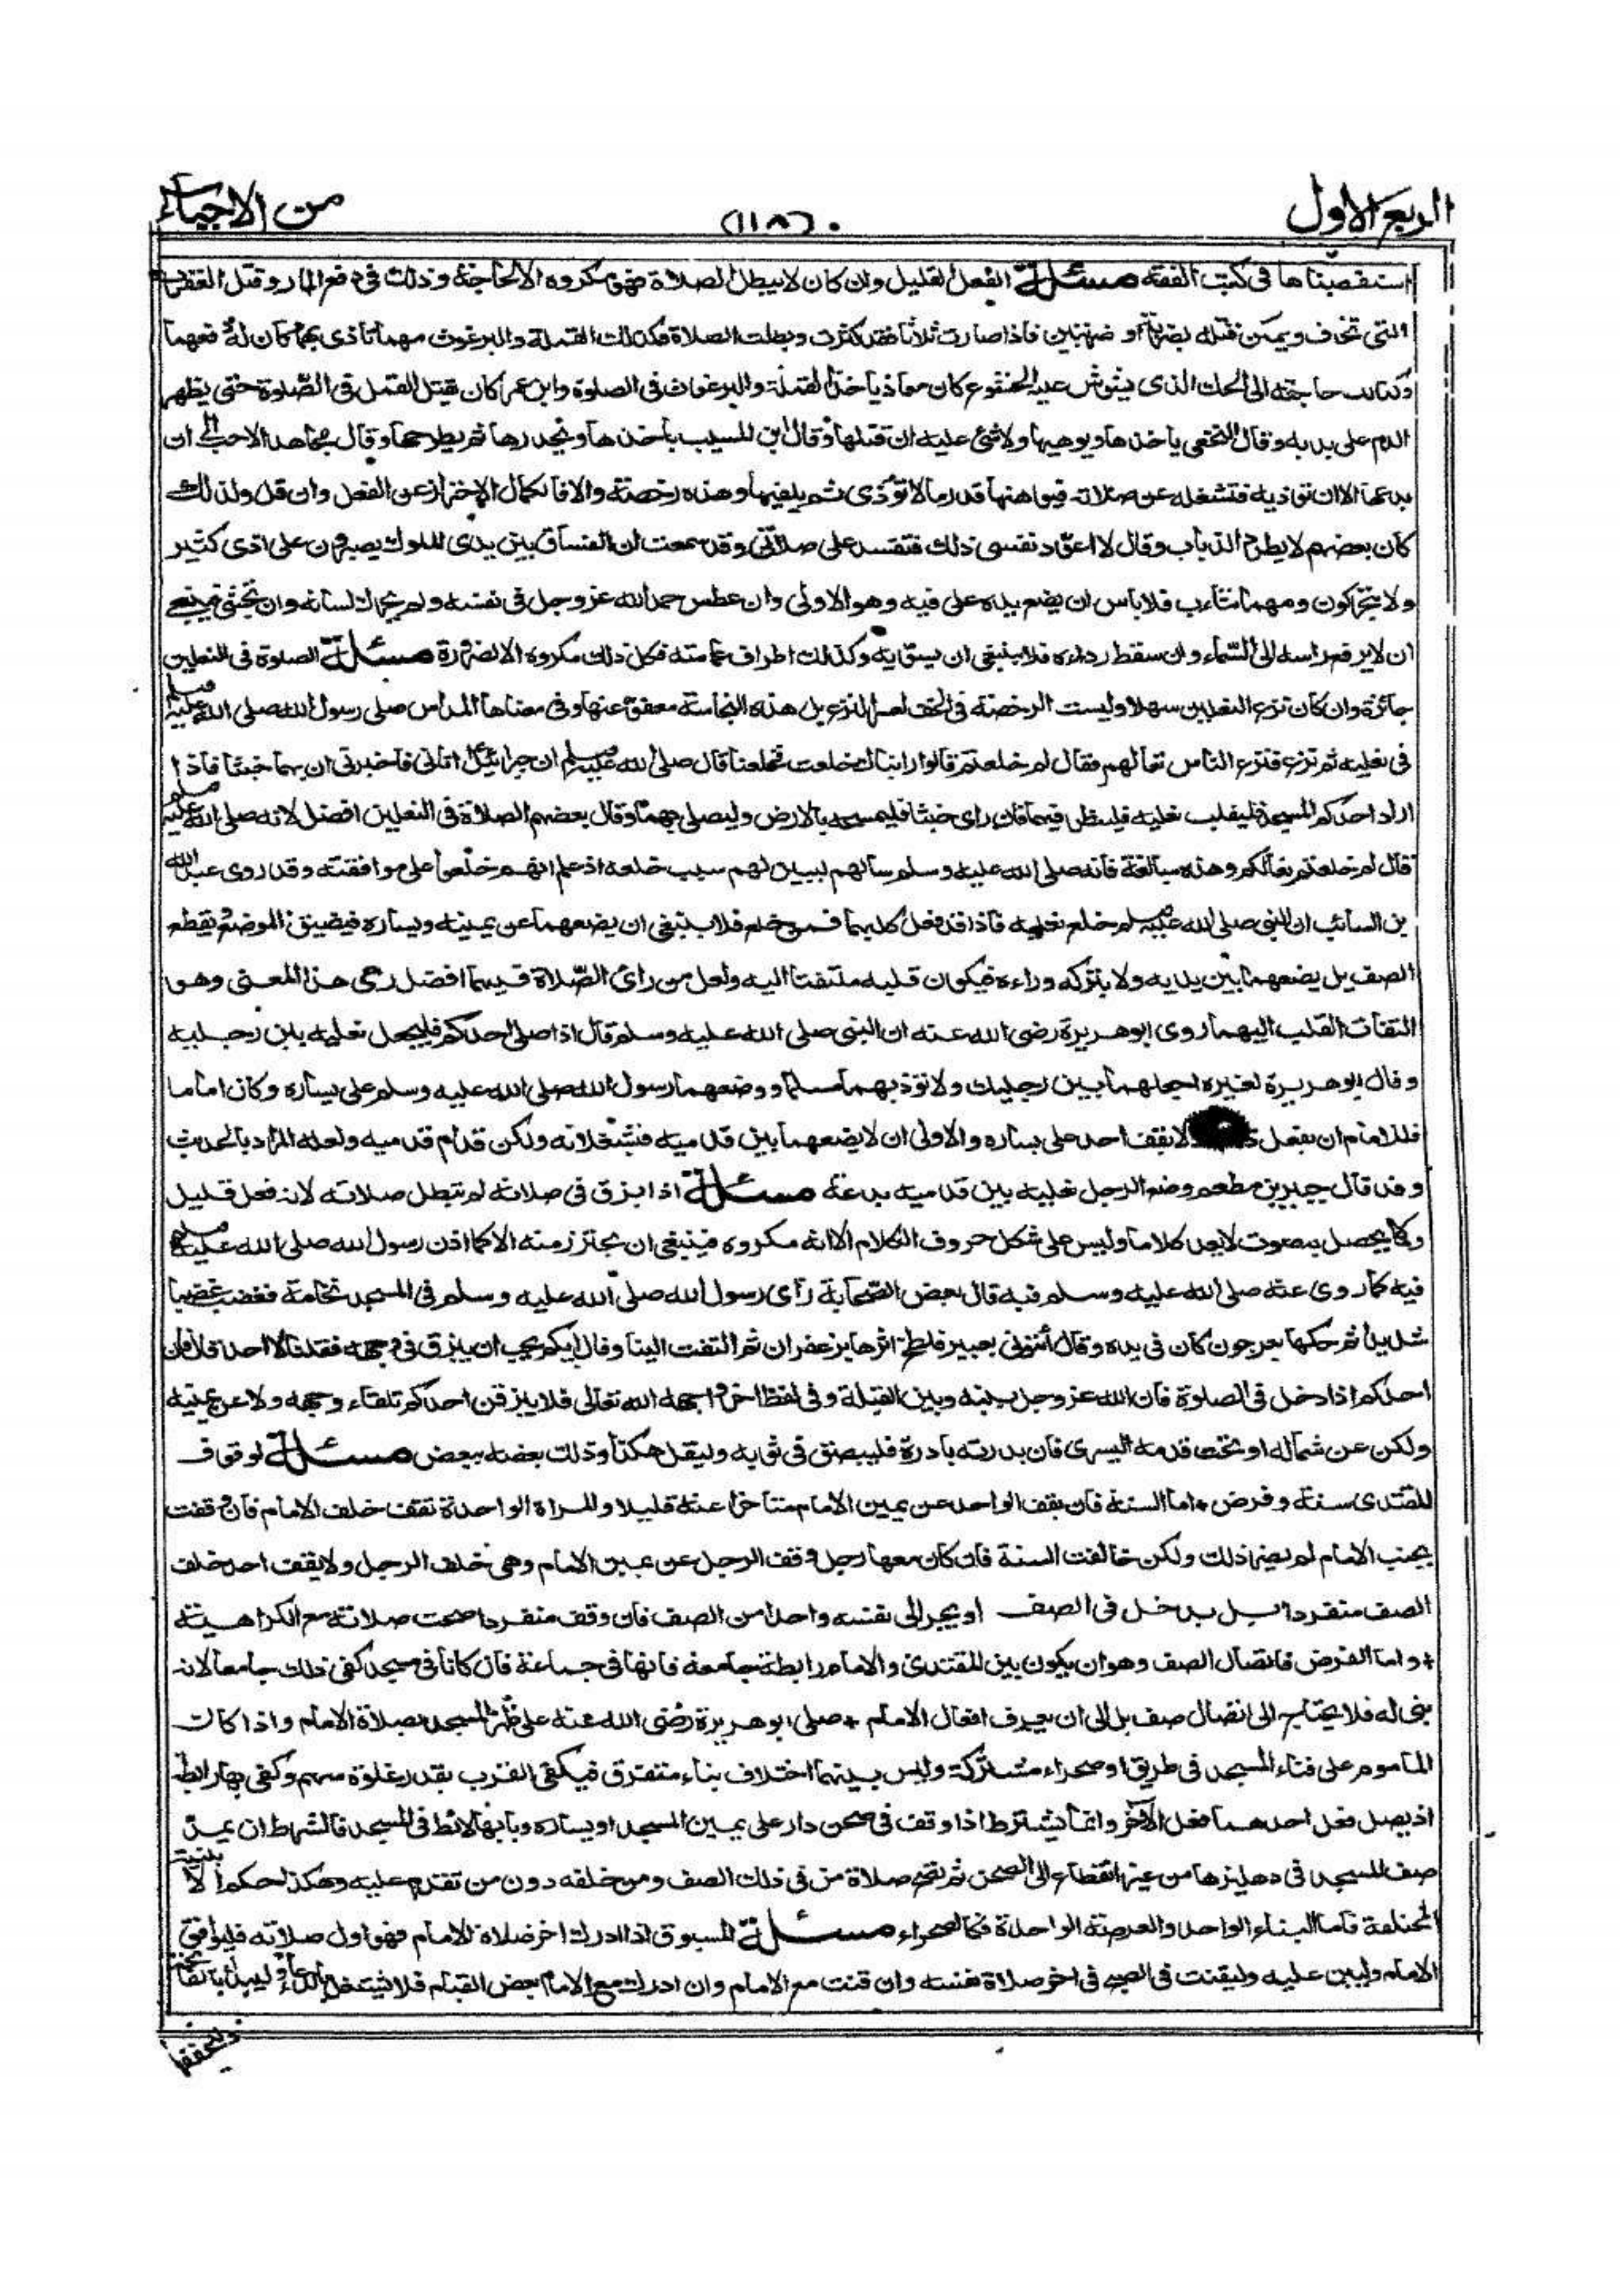 الربع الاول (١١٨) من الاحياء
استقصيناها فى كتب الفقه مسئلة الفعل القليل وان كان لا يبطل الصلاة فهو مكروه الا لحاجة وذلك فى دفع المار وقتل العقرب
التى تخاف ويمكن قتله بضربة او ضربتين فاذا صارت ثلاثا فقد كثرت وبطلت الصلاة فكذلك القملة والبرغوث مهما تأذى بهما كان له دفعهما
وكذلك حاجته الى الحك الذى يشوش عليه الخشوع كان معاذ يأخذ القملة والبرغوث فى الصلوة وابن عمر كان يقتل القمل فى الصلوة حتى يظهر
الدم على يده وقال النخعى ياخذها ويوهيها ولا شئ عليه ان قتلها وقال ابن المسيب يأخذها ويخدرها ثم يطرحها وقال مجاهد الاحب الى ان
يدعها الا ان توذيه فتشغله عن صلاته فيوهنها قدر ما لا تؤذى ثم يلقيها وهذه رخصة والا فالكمال الاحتراز عن الفعل وان قل ولذلك
كان بعضهم لا يطرح الذباب وقال لا اعود نفسى ذلك فتفسد على صلاتى وقد سمعت ان الفساق بين يدى الملوك يصبرون على اذى كثير
ولا يتحركون ومهما تثاءب فلا باس ان يضع يده على فيه وهو الاولى وان عطس حمد الله عز وجل فى نفسه ولم يحرك لسانه وان تجشى فينبغى
ان لا يرفع راسه الى السماء وان سقط رداءه فلا ينبغى ان يسويه وكذلك اطراف عمامته فكل ذلك مكروه الا لضرورة مسئلة الصلوة فى النعلين
جائزة وان كان نزع النعلين سهلا وليست الرخصة فى الخف لعسر النزع بل هذه النجاسة معفو عنها وفى معناها المداس صلى رسول الله صلى الله عليه وسلم
فى نعليه ثم نزع فنزع الناس نعالهم فقال لم خلعتم نعالكم قالوا رايناك خلعت فخلعنا قال صلى الله عليه وسلم ان جبرائيل اتانى فاخبرنى ان بهما خبثا فاذا
اراد احدكم المسجد فليقلب نعليه فلينظر فيهما فان راى خبثا فليمسحه بالارض وليصلى بهما وقال بعضهم الصلاة فى النعلين افضل لانه صلى الله عليه وسلم
قال لم خلعتم نعالكم وهذه مبالغة فانه صلى الله عليه وسلم سالهم ليبين لهم سبب خلعه اذ علم انهم خلعوا على موافقته وقد روى عبد الله
بن السائب ان النبى صلى الله عليه وسلم خلع نعليه فاذا قد فعل كليهما فمن خلع فلا ينبغى ان يضعهما عن يمينه ويساره فيضيق الموضع ويقطع
الصف بل يضعهما بين يديه ولا يتركه وراءه فيكون قلبه ملتفتا اليه ولعل من راى الصلاة فيهما افضل رعى هذا المعنى وهو
التفات القلب اليهما روى ابو هريرة رضى الله عنه ان النبى صلى الله عليه وسلم قال اذا صلى احدكم فليجعل نعليه بين رجليه
وقال ابو هريرة لغيره اجعلهما بين رجليك ولا تؤذ بهما مسلما ووضعهما رسول الله صلى الله عليه وسلم على يساره وكان اماما
فللامام ان يفعل لا يقف احد على يساره والاولى ان لا يضعهما بين قدميه فتشغلانه ولكن قدام قدميه ولعله المراد بالحديث
وقد قال جبير بن مطعم وضع الرجل نعليه بين قدميه بدعة مسئلة اذا بزق فى صلاته لم تبطل صلاته لانه فعل قليل
وما لا يحصل به صوت لا يعد كلاما وليس على شكل حروف الكلام الا انه مكروه فينبغى ان يحترز منه الا كما اذن رسول الله صلى الله عليه وسلم
فيه كما روى عنه صلى الله عليه وسلم فيه قال بعض الصحابة رأى رسول الله صلى الله عليه وسلم فى المسجد نخامة فغضب غضبا
شديدا ثم حكها بعرجون كان فى يده وقال أئتونى بعبير فلطخ اثرها بزعفران ثم التفت الينا وقال ايكم يحب ان يبزق فى وجهه فقلنا لا احد قال فان
احدكم اذا دخل فى الصلوة فان الله عز وجل بينه وبين القبلة وفى لفظ اخر واجهه الله تعالى فلا يبزقن احدكم تلقاء وجهه ولا عن يمينه
ولكن عن شماله او تحت قدمه اليسرى فان بدرته بادرة فليبصق فى ثوبه وليقل هكذا وذلك بعضه ببعض مسئلة لوقوف
المقتدى سنة وفرض * اما السنة فان يقف الواحد عن يمين الامام متاخرا عنه قليلا والمراة الواحدة تقف خلف الامام فان وقفت
بجنب الامام لم يضر ذلك ولكن خالفت السنة فان كان معها رجل وقف الرجل عن يمين الامام وهى خلف الرجل ولا يقف احد خلف
الصف منفردا بل يدخل فى الصف او يجر الى نفسه واحدا من الصف فان وقف منفردا صحت صلاته مع الكراهية
* واما الفرض فاتصال الصف وهو ان يكون بين المقتدى والامام رابطة جامعة فانها فى جماعة فان كانا فى مسجد كفى ذلك جامعا لانه
بنى له فلا يحتاج الى اتصال صف بل الى ان يعرف افعال الامام * صلى ابو هريرة رضى الله عنه على ظهر المسجد بصلاة الامام واذا كان
الماموم على فناء المسجد فى طريق او صحراء مشتركة وليس بينهما اختلاف بناء متفرق فيكفى القرب بقدر غلوة سهم وكفى بها رابطا
اذ يصل فعل احدهما فعل الآخر وانما يشترط اذا وقف فى صحن دار على يمين المسجد او يساره وبابها لائط فى المسجد فالشرط ان يمد
صف المسجد فى دهليزها من غير انقطاع الى الصحن ثم تصح صلاة من فى ذلك الصف ومن خلفه دون من تقدم عليه وهكذا حكم الابنية
المختلفة فاما البناء الواحد والعرصة الواحدة فكالصحراء مسئلة المسبوق اذا ادرك اخر صلاة الامام فهو اول صلاته فليوافق
الامام وليبن عليه وليقنت فى الصبح فى اخر صلاة نفسه وان قنت مع الامام وان ادرك مع الامام بعض القيام فلا يشتغل بالدعاء وليبدأ بالفاتحة
وليخففها